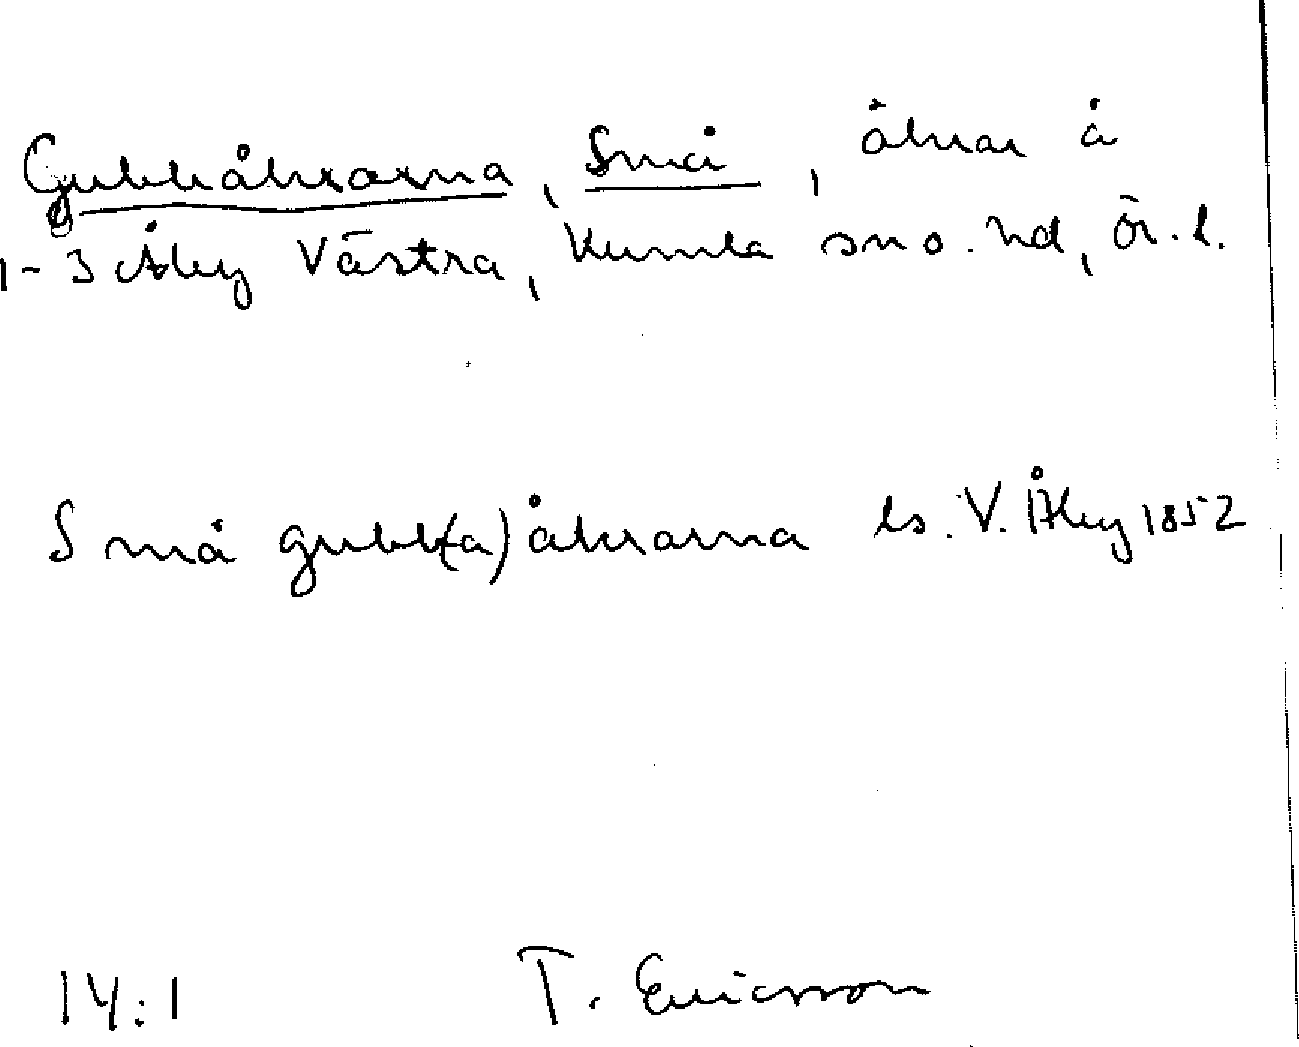 Gubbåkrarna, Små, åkrar å
1-3 Åby Västra, Kumla sn o. hd, Ör. l.
Små gubb(a)åkrarna ls. V. Åby 1852
14:1 T. Ericsson